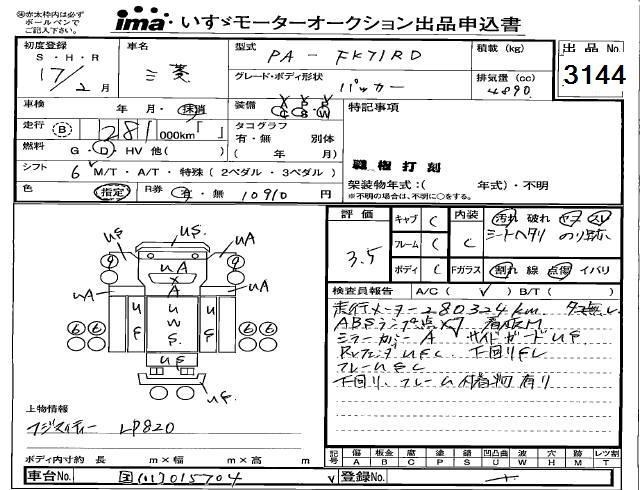 ㊟赤太枠内は必ず
ボールペンで
ご記入下さい。
ima いすゞモーターオークション出品申込書
初度登録 車名 型式 PA-FK71RD 積載 (kg) 出品No.
S・H・R
17/2月 三菱 グレード・ボディ形状 パッカー 排気量 (cc) 4890 3144
車検 年 月・抹消 装備 A/C P/S P/W 特記事項
走行 B 281,000km「 」 タコグラフ 有・無 別体
燃料 G・D・HV 他( ) ( 年 月) 職権打刻
シフト 6 M/T・A/T・特殊(2ペダル・3ペダル) 架装物年式:( 年式)・不明
※不明の場合は、不明に○をする。
色 指定 R券 有・無 10910 円
評価 3.5 キャブ C 内装 C 汚れ 破れ ヤケ スレ
シートヘタリ のり跡
フレーム C
ボディ C Fガラス 割れ 線 点傷 イバリ
検査員報告 A/C( ✓ ) B/T( )
走行メーター280324km
ABSランプ点
ミラーカバーA サイドガードUF
下回りFL
フレーム
下回り、フレーム付着物有り
UF UA
UA UA UA
A
UF UWS UF
6 6 6 6
UF
UF
上物情報
フジマイティー LP820
ボディ内寸約 長 m×幅 m×高 m
記号 傷 板金 腐 塗 錆 凹凸曲 波 穴 跡 レツ割
A B C P S U W H M T
車台No. 国(01)015704 登録No.